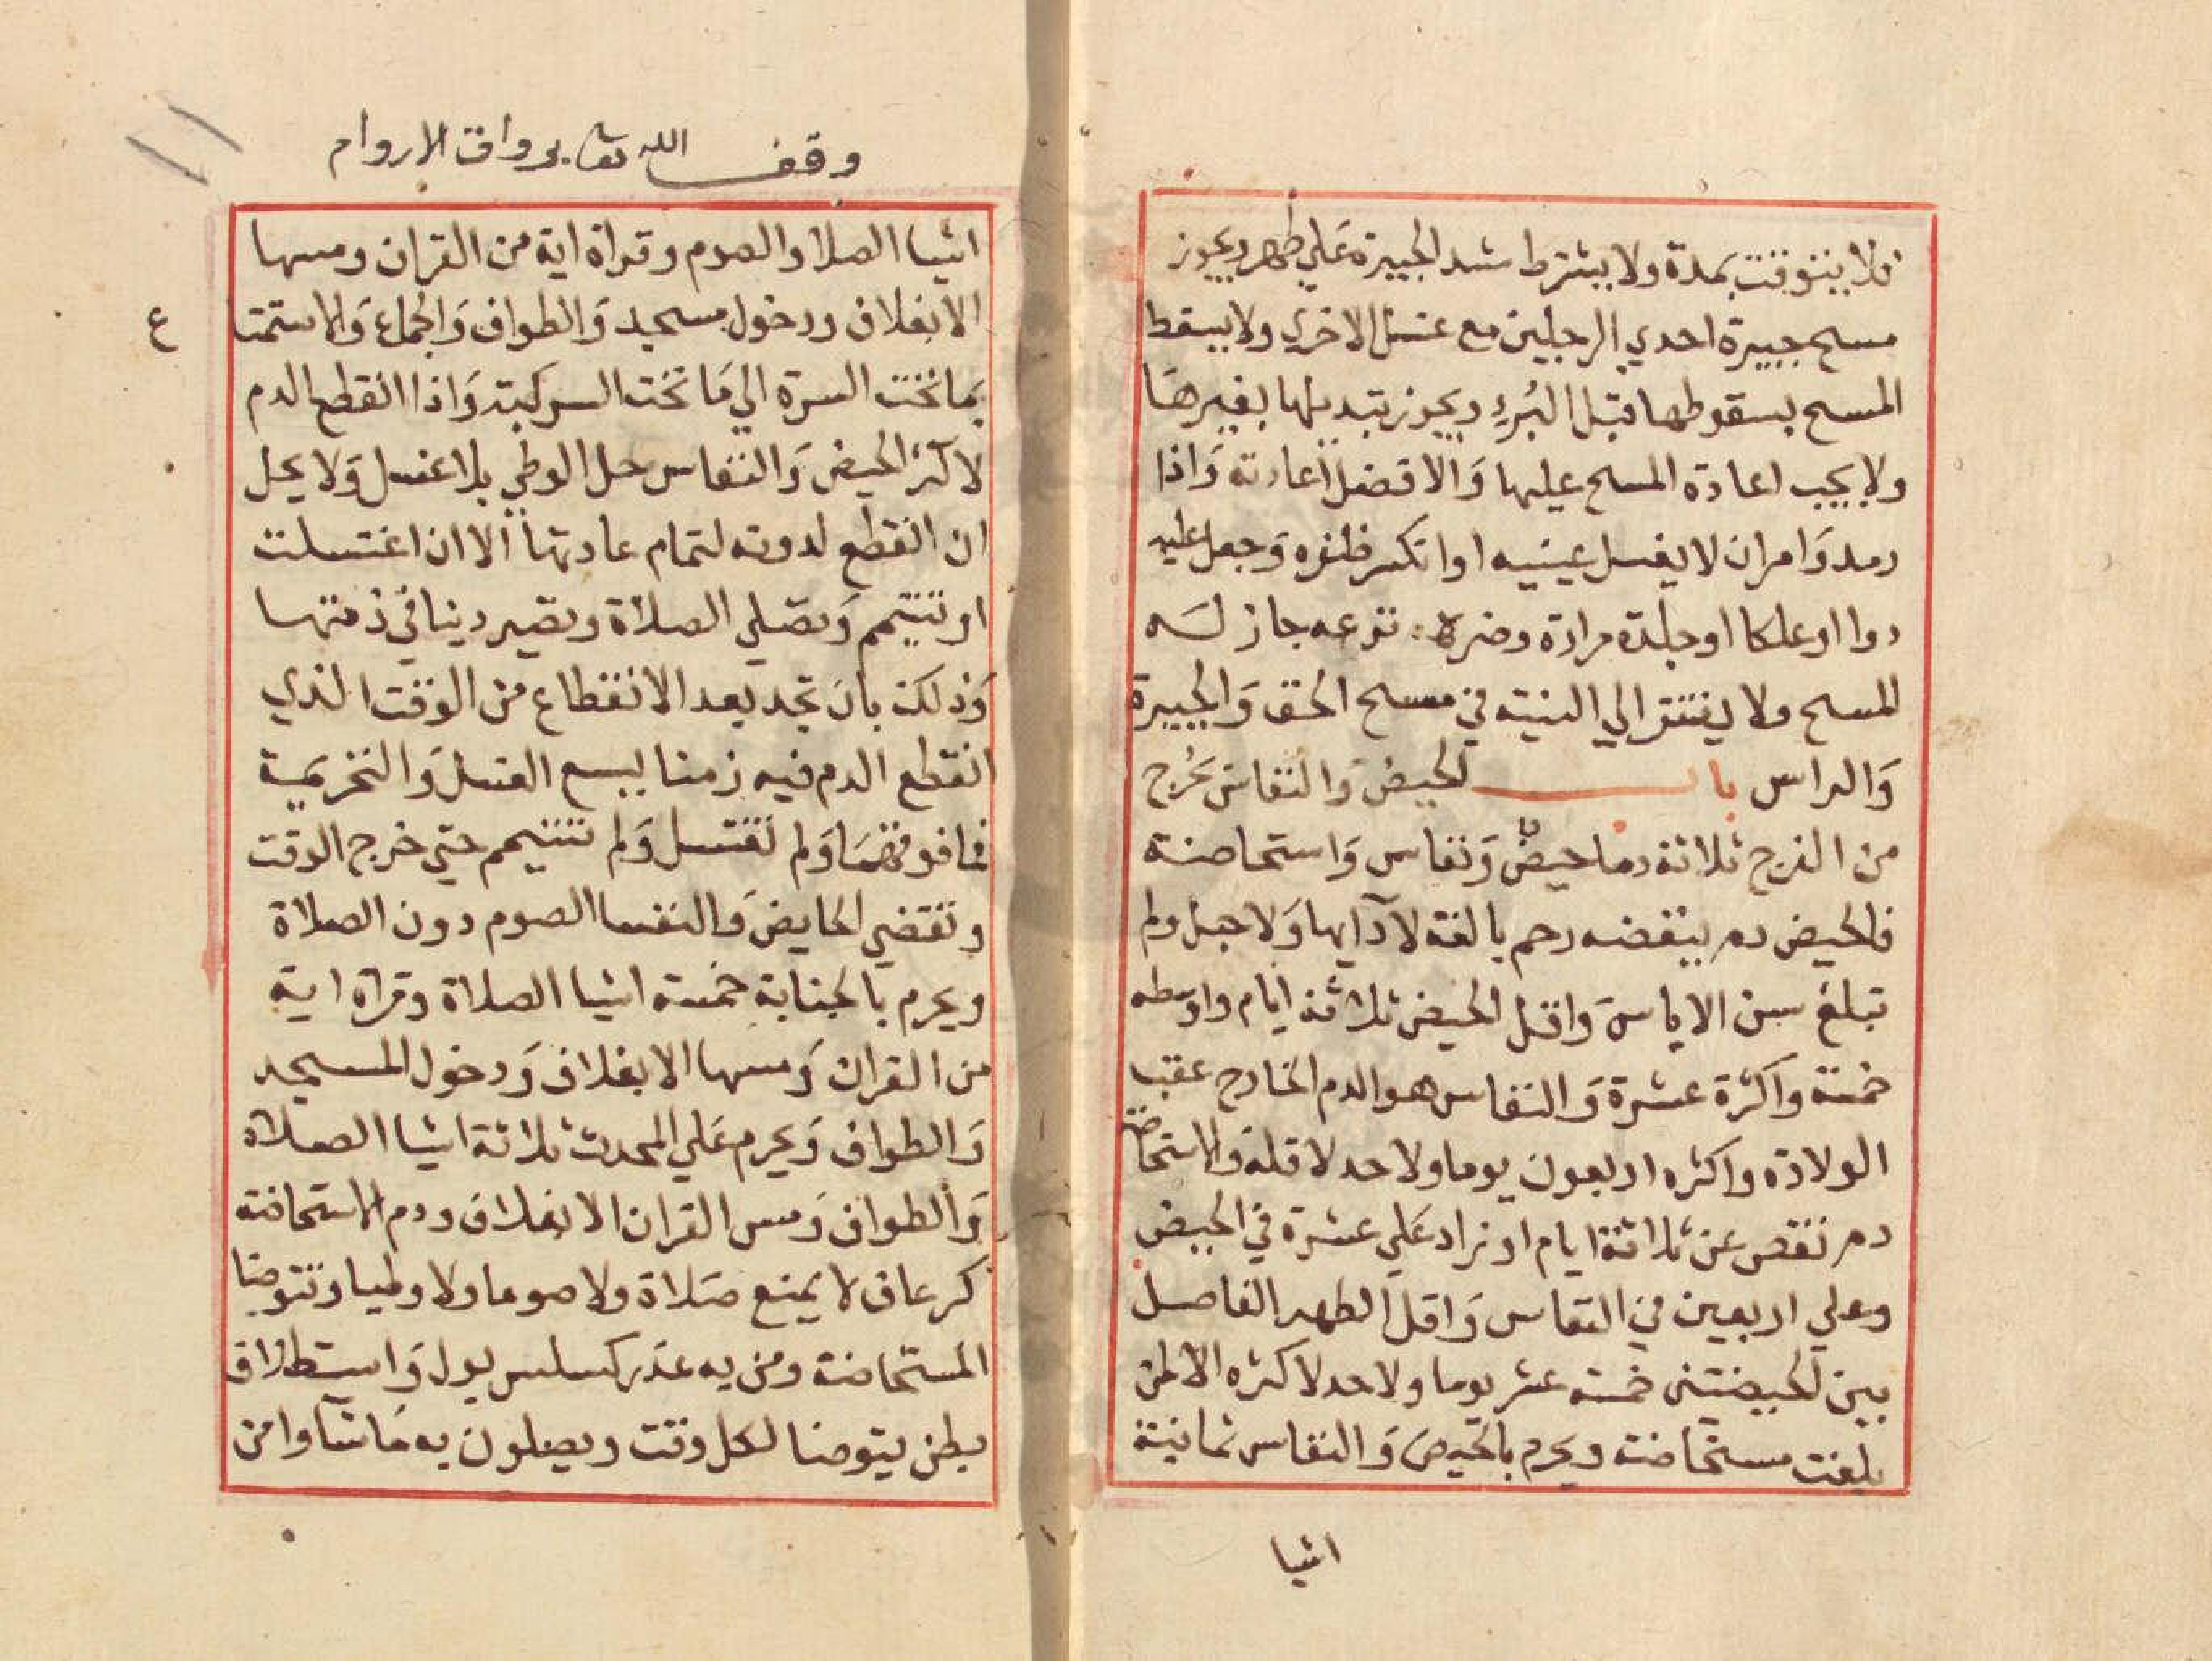 فلا يتوقت بمدة ولا يشترط شد الجبيرة علي طهر ويجوز
مسح جبيرة احدي الرجلين مع غسل الاخري ولا يسقط
المسح بسقوطها قبل البرء ويجوز تبديلها بغيرها
ولا يجب اعادة المسح عليها والافضل اعادته واذا
رمد وامر ان لا يغسل عينيه او انكسر ظفره وجعل عليه
دوا او علكا او جلدة مرارة وضره نزعه جاز له
المسح ولا يفتقر الي النية في مسح الخف والجبيرة
والراس باب الحيض والنفاس يخرج
من الفرج ثلاثة دما حيض ونفاس واستحاضة
فالحيض دم ينفضه رحم بالغة لا دا بها ولا حبل ولم
تبلغ سن الاياس واقل الحيض ثلاثة ايام واوسطه
خمسة واكثرة عشرة والنفاس هو الدم الخارج عقب
الولادة واكثره اربعون يوما ولا حد لاقله والاستحاضة
دم نقص عن ثلاثة ايام او زاد علي عشرة في الحيض
وعلي اربعين في النفاس واقل الطهر الفاصل
بين الحيضتين خمسة عشر يوما ولا حد لاكثره الا لمن
بلغت مستحاضة ويحرم بالحيض والنفاس ثمانية
اشيا
وقف الله تعا برواق الاروام
اشيا الصلاة والصوم وقراة اية من القران ومسها
الا بغلاف ودخول مسجد والطواف والجماع والاستمتا
ع
بما تحت السرة الي ما تحت السركبة واذا انقطع الدم
لاكثر الحيض والنفاس حل الوطي بلا غسل ولا يحل
ان انقطع لدونه لتمام عادتها الا ان اغتسلت
او تتيمم وتصلي الصلاة وتصير دينا في ذمتها
وذلك بان تجد بعد الانقطاع من الوقت الذي
انقطع الدم فيه زمنا يسع الغسل والتحريمة
فما فوقهما ولم تغتسل ولم تتيمم حتي خرج الوقت
وتقضي الحايض والنفسا الصوم دون الصلاة
ويحرم بالجنابة خمسة اشيا الصلاة وقراة اية
من القران ومسها الا بغلاف ودخول المسجد
والطواف ويحرم علي المحدث ثلاثة اشيا الصلاة
والطواف ومس القران الا بغلاف ودم الاستحاضة
كرعاف لا يمنع صلاة ولا صوما ولا وطيا وتتوضا
المستحاضة ومن به عذر كسلس بول واستطلاق
بطن يتوضا لكل وقت ويصلون به ماشاوا من